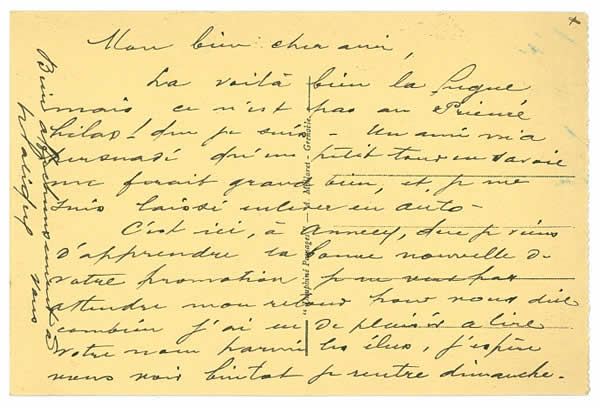 Mon bien cher ami,
La voilà bien la figue
mais ce n'est pas au Prieuré
hélas! que je suis - Un ami m'a
persuadé qu'un petit tour en Savoie
me ferait grand bien, et je me
suis laissé enlever en auto -
C'est ici, à Annecy, que je viens
d'apprendre la bonne nouvelle de
votre promotion je ne veux pas
attendre mon retour pour vous dire
combien j'ai eu de plaisir à lire
votre nom parmi les élus, j'espère
vous voir bientot je rentre dimanche.
Bien affectueusement à
vous
"Dauphiné
Grenoble